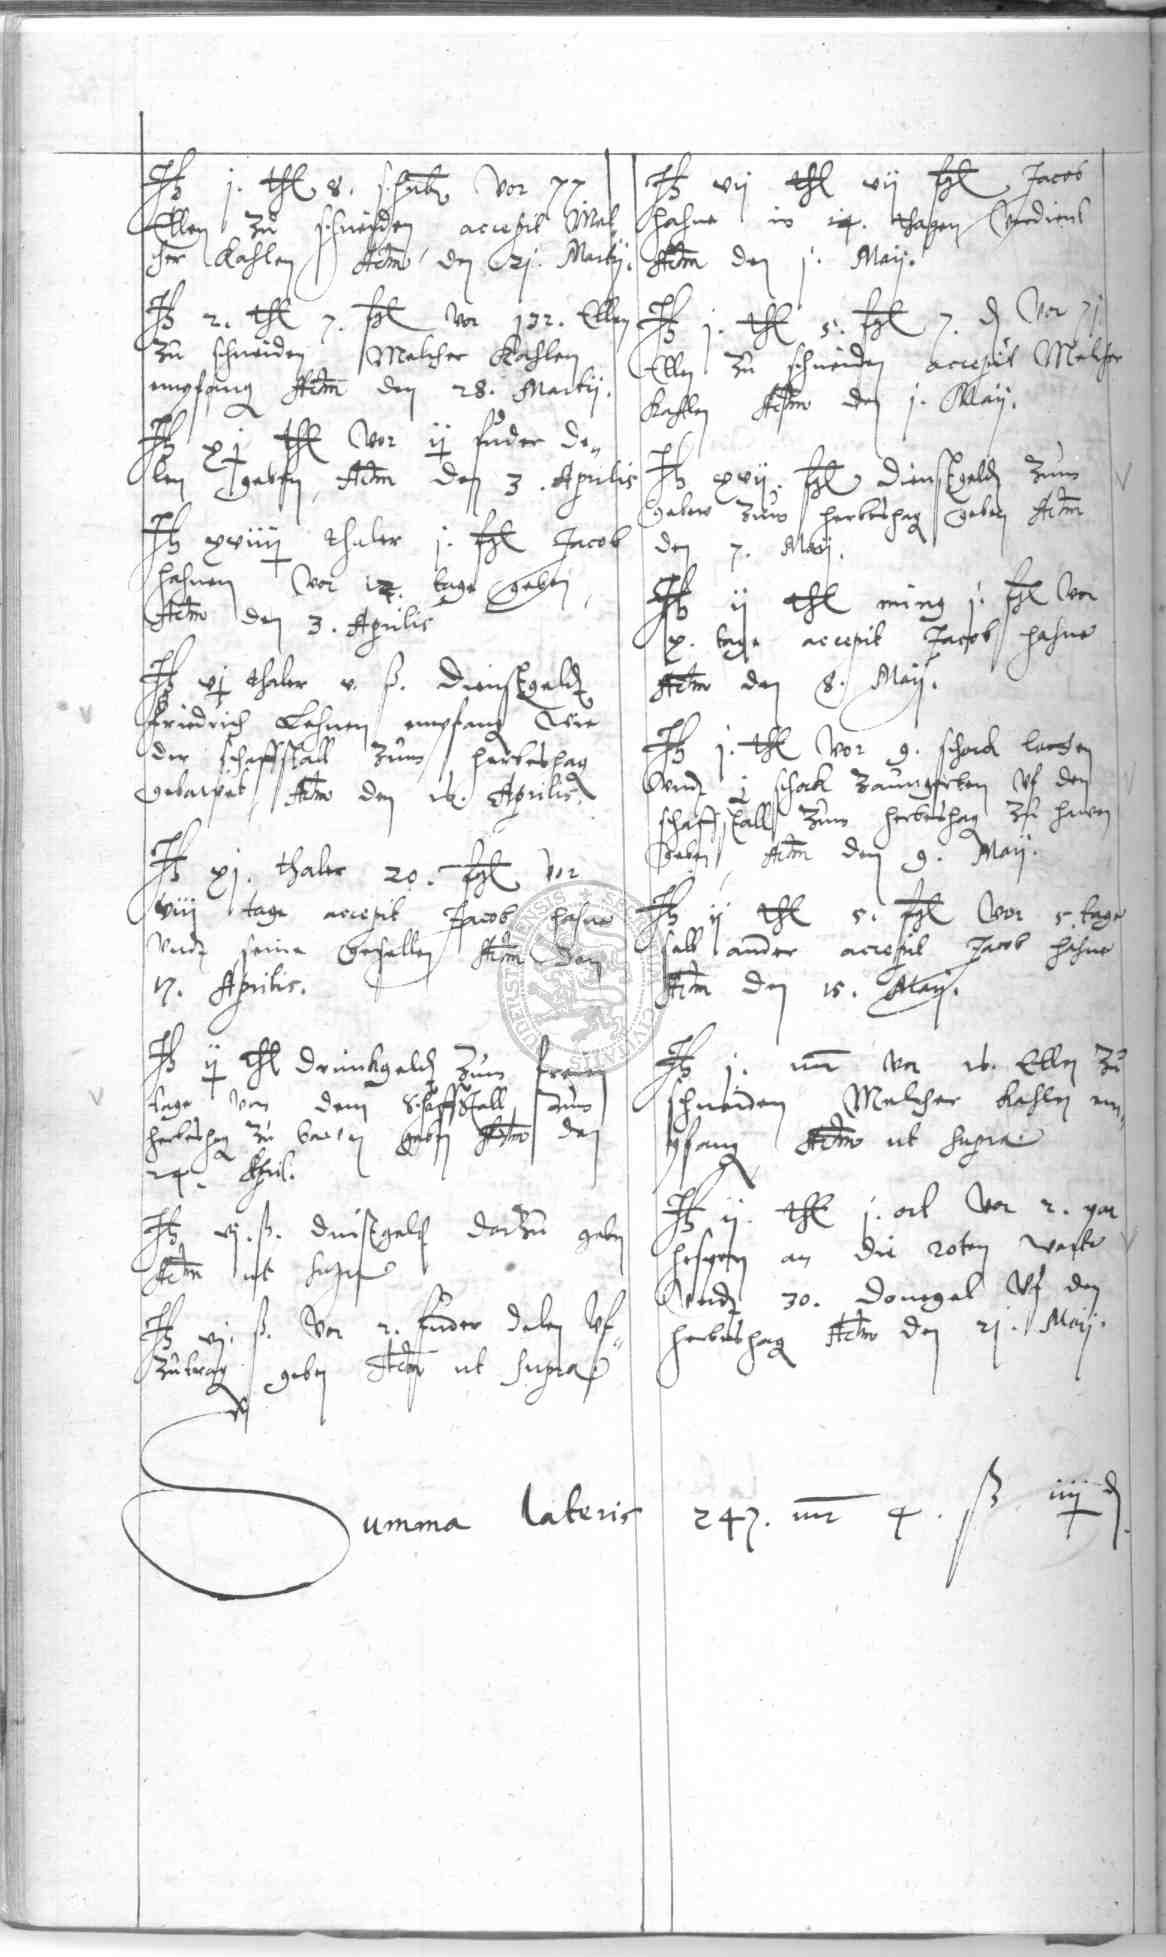 It j. thl 8. schnb vor 77
Ellen zu schneiden accepit Mel-
cher Kahlen Actm den 21. Martij.
It 2. thl 7. ßgl vor 132. Ellen
zu schneiden Melcher Kahlen
empfang Actm den 28. Martij.
It xj thl vor ij fuder de-
len geben Actm den 3. Aprilis
It xviiij thaler j. ßgl Jacob
Hahnen vor 12. tage geben
Actm den 3. Aprilis
It vj thaler v. ß. Dienstgeld
Friedrich Lehnen empfang wie
der schaffstall zum herbeshag
gebawet Actm den 16. Aprilis.
It xj. thaler 20. ßgl vor
viij tage accepit Jacob Hahne
vnd seine gesellen Actm den
17. Aprilis.
It ij thl drinkgeld zum
tage von dem Schaffstall zum
herbeshag zu bawen geben Actm den
24. April.
It vj. ß. dinstgeld darzu geben
Actm ut supra
It vj. ß. vor 2. fuder delen vf-
zutrag geben Actm ut supra
It vij thl vij ßgl Jacob
Hahne in 14. thagen verdient
Actm den j. Maij.
It j. thl 5. ßgl 7. d vor 71.
Ellen zu schneiden accepit Melcher
Kahlen Actm den j. Maij.
It xvij. ßgl dienstgeld zum
zum herbeshag geben Actm
den 7. Maij.
It ij thl ming j. ßgl vor
x. tage accepit Jacob Hahne
Actm den 8. Maij.
It j. thl vor 9. schock
vnd j schock zaungerten vf den
schaffstall zum herbeshag zu hawen
geben Actm den 9. Maij.
It ij thl 5. ßgl vor 5 tage
selb ander accepit Jacob Hahne
Actm den 15. Maij.
It j. mr vor 16. Ellen zu
schneiden Melcher Kahlen em-
pfang Actm ut supra
It ij. thl j. ort vor 2. par
hespen an die roten
vnd 30. vf den
herbeshag Actm den 21. Maij.
Summa lateris 247. mr 4. ß iiij d
SIGILLUM CIVITATIS